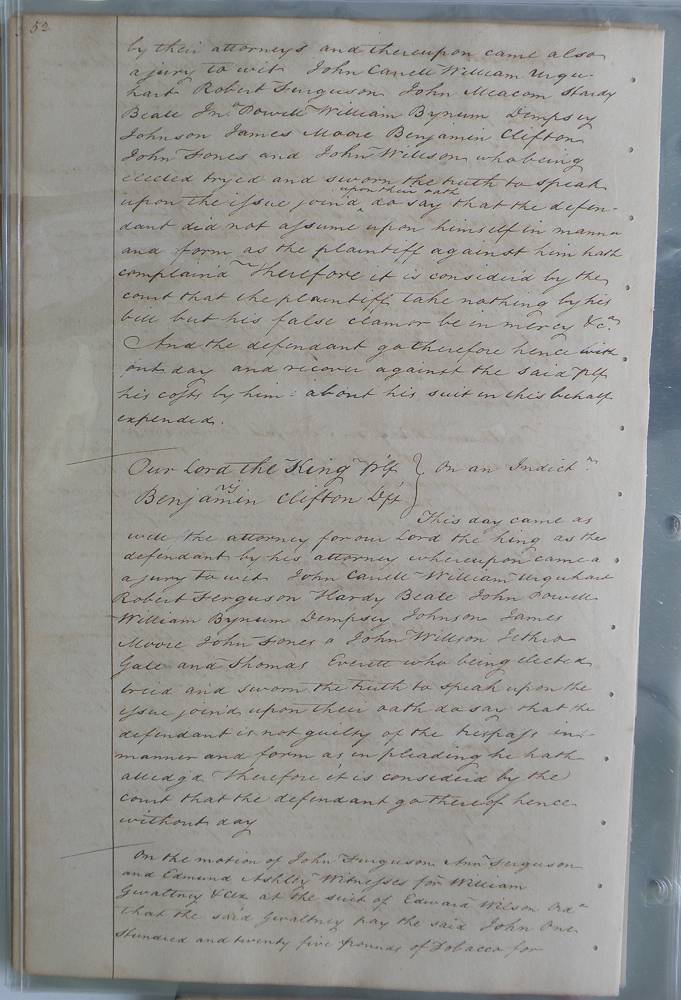 52
by their attorneys and thereupon came also
a jury to wit John Carrell William Urqu-
hart Robert Ferguson John Meacom Hardy
Beale Jn.º Powell William Bynum Dempsey
Johnson James Moore Benjamin Clifton
John Jones and John Willson who being
elected tryed and sworn the truth to speak
upon their oath
upon the issue join'd ^ do say that the defen-
dant did not assume upon himself in manner
and form as the plaintiff against him hath
complain'd Therefore it is consider'd by the
court that the plaintiff take nothing by his
bill but his false clamor be in mercy &c.ª
And the defendant go therefore hence with
out day and recover against the said Plf
his costs by him : about his suit in this behalf
expended.
Our Lord the King Plf } On an Indict.
vs
Benjamin Clifton Dft
This day came as
well the attorney for our Lord the King as the
defendant by his attorney whereupon came a
a jury to wit John Carrell William Urquhart
Robert Ferguson Hardy Beale John Powell
William Bynum Dempsey Johnson James
Moore John Jones a John Willson Jethro
Gale and Thomas Everett who being elected
tried and sworn the truth to speak upon the
issue join'd upon their oath do say that the
defendant is not guilty of the trespass in
manner and form as in pleading he hath
alledg'd Therefore it is consider'd by the
court that the defendant go thereof hence
without day
On the motion of John Ferguson Ann Ferguson
and Edmund Ashley Witnesses for William
Gwaltney &Cex at the suit of Edward Wilson Ord.ª
that the said Gwaltney pay the said John One
Hundred and twenty five pounds of Tobacco for